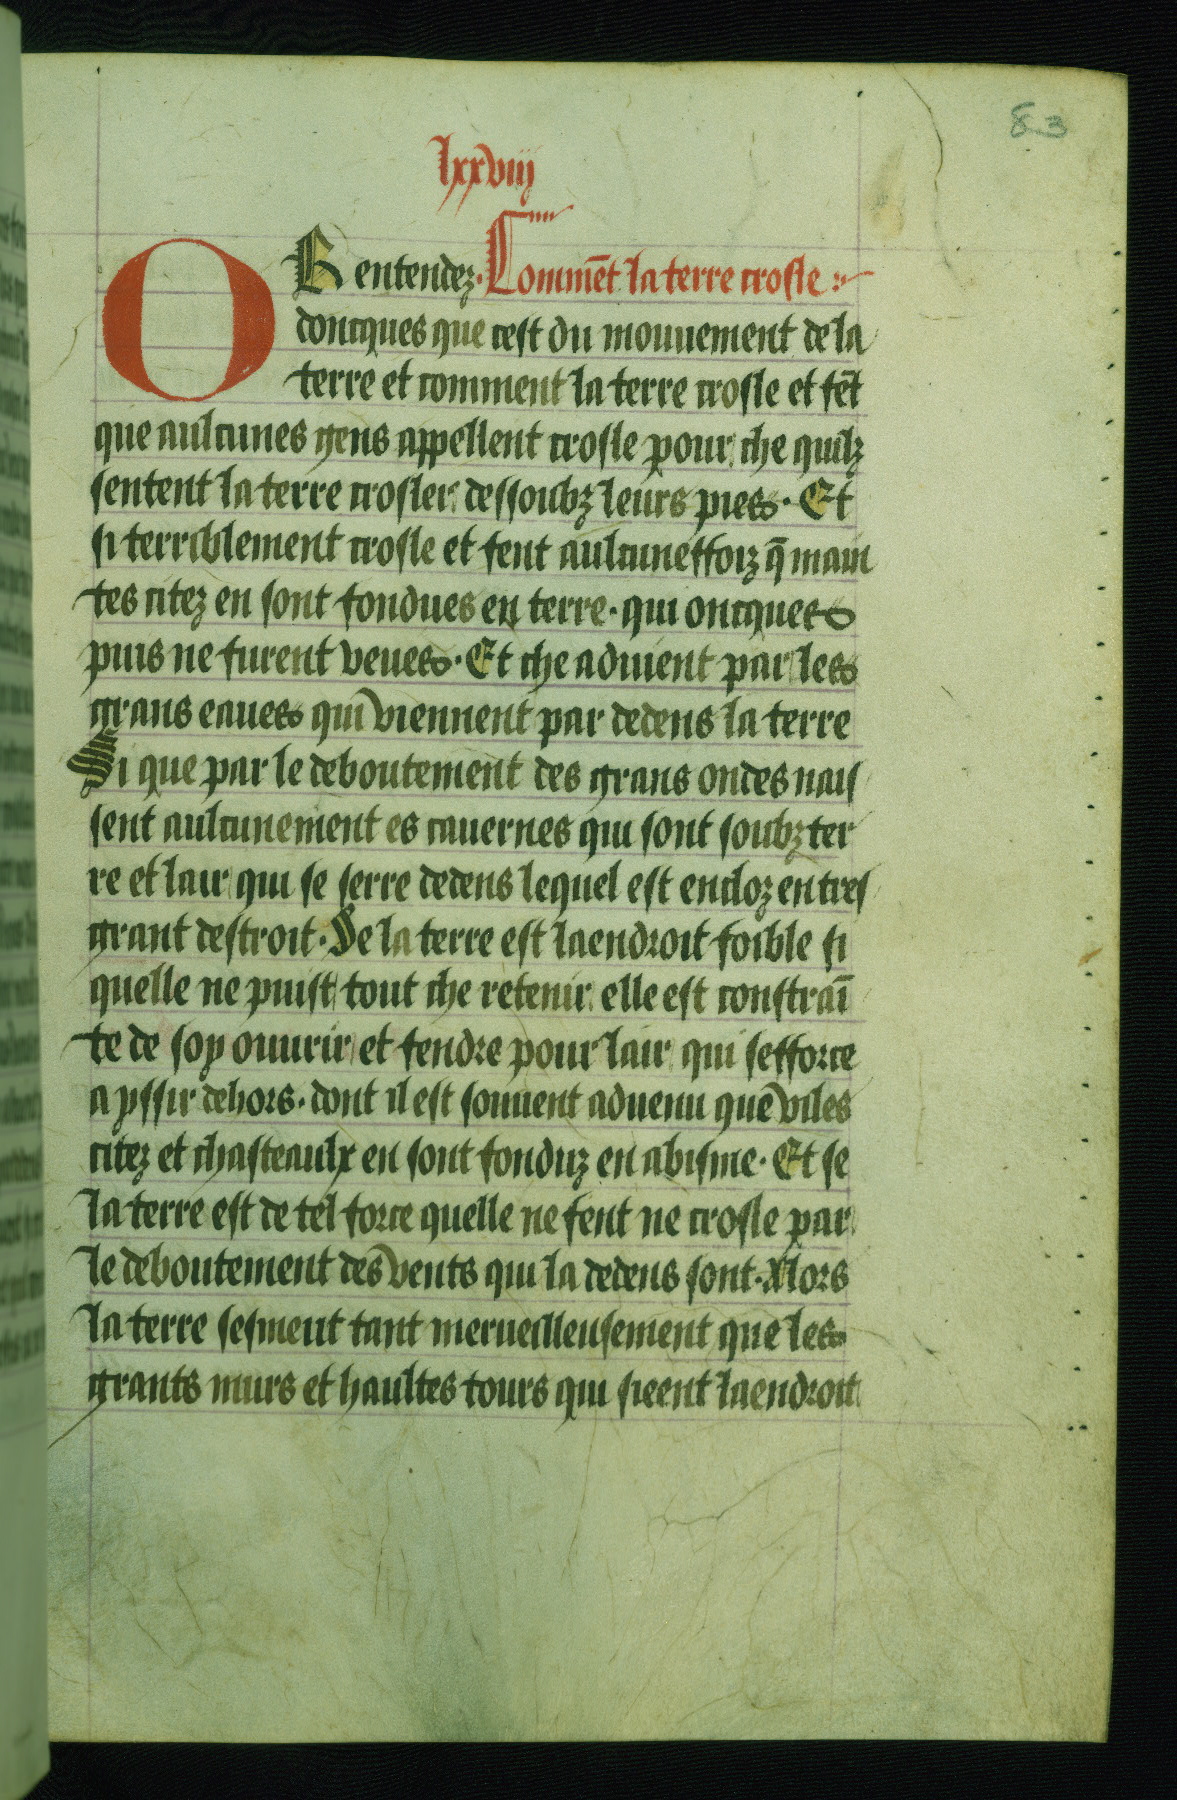 83
lxxviij
OR entendez. Comme͞t la terre crosle
doncques que cest du mouuement de la
terre et comment la terre crosle et fe͞t
que aulcunes gens appellent crosle pour che quilz
sentent la terre crosler dessoubz leurs pies. Et
si terriblement crosle et fent aulcuneffoiz q̄ main
tes citez en sont fondues en terre. qui oncques
puis ne furent veues. Et che aduient par les
grans eaues qui viennent par dedens la terre
Si que par le deboutement des grans ondes nais
sent aulcunement es cauernes qui sont soubz ter
re et lair qui se serre dedens lequel est encloz en tres
grant destroit. Se la terre est laendroit foible si
quelle ne puist tout che retenir elle est constrai͞
te de soy ouurir et fendre pour lair qui sefforce
a yssir dehors. dont il est souuent aduenu que viles
citez et chasteaulx en sont fonduz en abisme. Et se
la terre est de tel force quelle ne fent ne crosle par
le deboutement des vents qui la dedens sont. Alors
la terre sesmeut tant merueilleusement que les
grants murs et haultes tours qui sieent laendroit